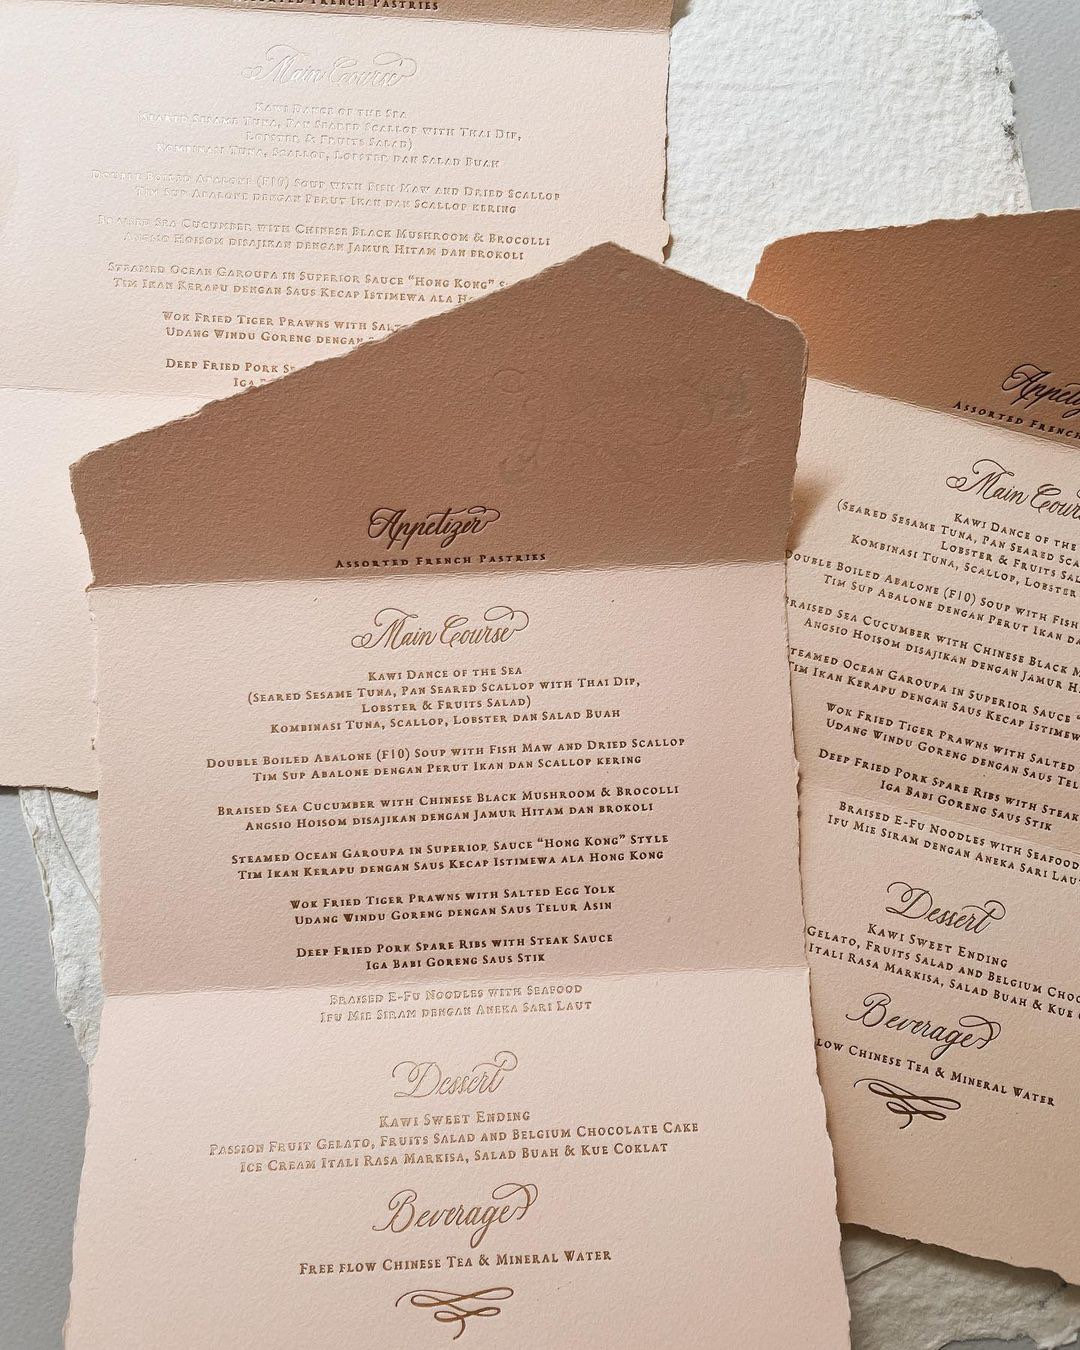 Assorted French Pastries
Main Course
Kawi Dance of the Sea
(Seared Sesame Tuna, Pan Seared Scallop with Thai Dip,
Lobster & Fruits Salad)
Kombinasi Tuna, Scallop, Lobster dan Salad Buah
Double Boiled Abalone (F10) Soup with Fish Maw and Dried Scallop
Tim Sup Abalone dengan Perut Ikan dan Scallop kering
Braised Sea Cucumber with Chinese Black Mushroom & Brocolli
Angsio Hoisom disajikan dengan Jamur Hitam dan brokoli
Steamed Ocean Garoupa in Superior Sauce "Hong Kong"
Tim Ikan Kerapu dengan Saus Kecap Istimewa ala
Wok Fried Tiger Prawns with
Udang Windu Goreng dengan
Deep Fried Pork
Iga
Appetizer
Assorted French Pastries
Main Course
Kawi Dance of the Sea
(Seared Sesame Tuna, Pan Seared Scallop with Thai Dip,
Lobster & Fruits Salad)
Kombinasi Tuna, Scallop, Lobster dan Salad Buah
Double Boiled Abalone (F10) Soup with Fish Maw and Dried Scallop
Tim Sup Abalone dengan Perut Ikan dan Scallop kering
Braised Sea Cucumber with Chinese Black Mushroom & Brocolli
Angsio Hoisom disajikan dengan Jamur Hitam dan brokoli
Steamed Ocean Garoupa in Superior Sauce "Hong Kong" Style
Tim Ikan Kerapu dengan Saus Kecap Istimewa ala Hong Kong
Wok Fried Tiger Prawns with Salted Egg Yolk
Udang Windu Goreng dengan Saus Telur Asin
Deep Fried Pork Spare Ribs with Steak Sauce
Iga Babi Goreng Saus Stik
Braised E-Fu Noodles with Seafood
Ifu Mie Siram dengan Aneka Sari Laut
Dessert
Kawi Sweet Ending
Passion Fruit Gelato, Fruits Salad and Belgium Chocolate Cake
Ice Cream Itali Rasa Markisa, Salad Buah & Kue Coklat
Beverage
Free flow Chinese Tea & Mineral Water
Assorted French
Main
Kawi Dance of the
(Seared Sesame Tuna, Pan Seared
Lobster & Fruits
Kombinasi Tuna, Scallop, Lobster
Double Boiled Abalone (F10) Soup with Fish
Tim Sup Abalone dengan Perut Ikan
Braised Sea Cucumber with Chinese Black
Angsio Hoisom disajikan dengan Jamur
Steamed Ocean Garoupa in Superior Sauce
Tim Ikan Kerapu dengan Saus Kecap
Wok Fried Tiger Prawns with Salted
Udang Windu Goreng dengan Saus
Deep Fried Pork Spare Ribs with Steak
Iga Babi Goreng Saus Stik
Braised E-Fu Noodles with Seafood
Ifu Mie Siram dengan Aneka Sari
Dessert
Kawi Sweet Ending
Gelato, Fruits Salad and Belgium
Itali Rasa Markisa, Salad Buah & Kue
Beverage
flow Chinese Tea & Mineral Water